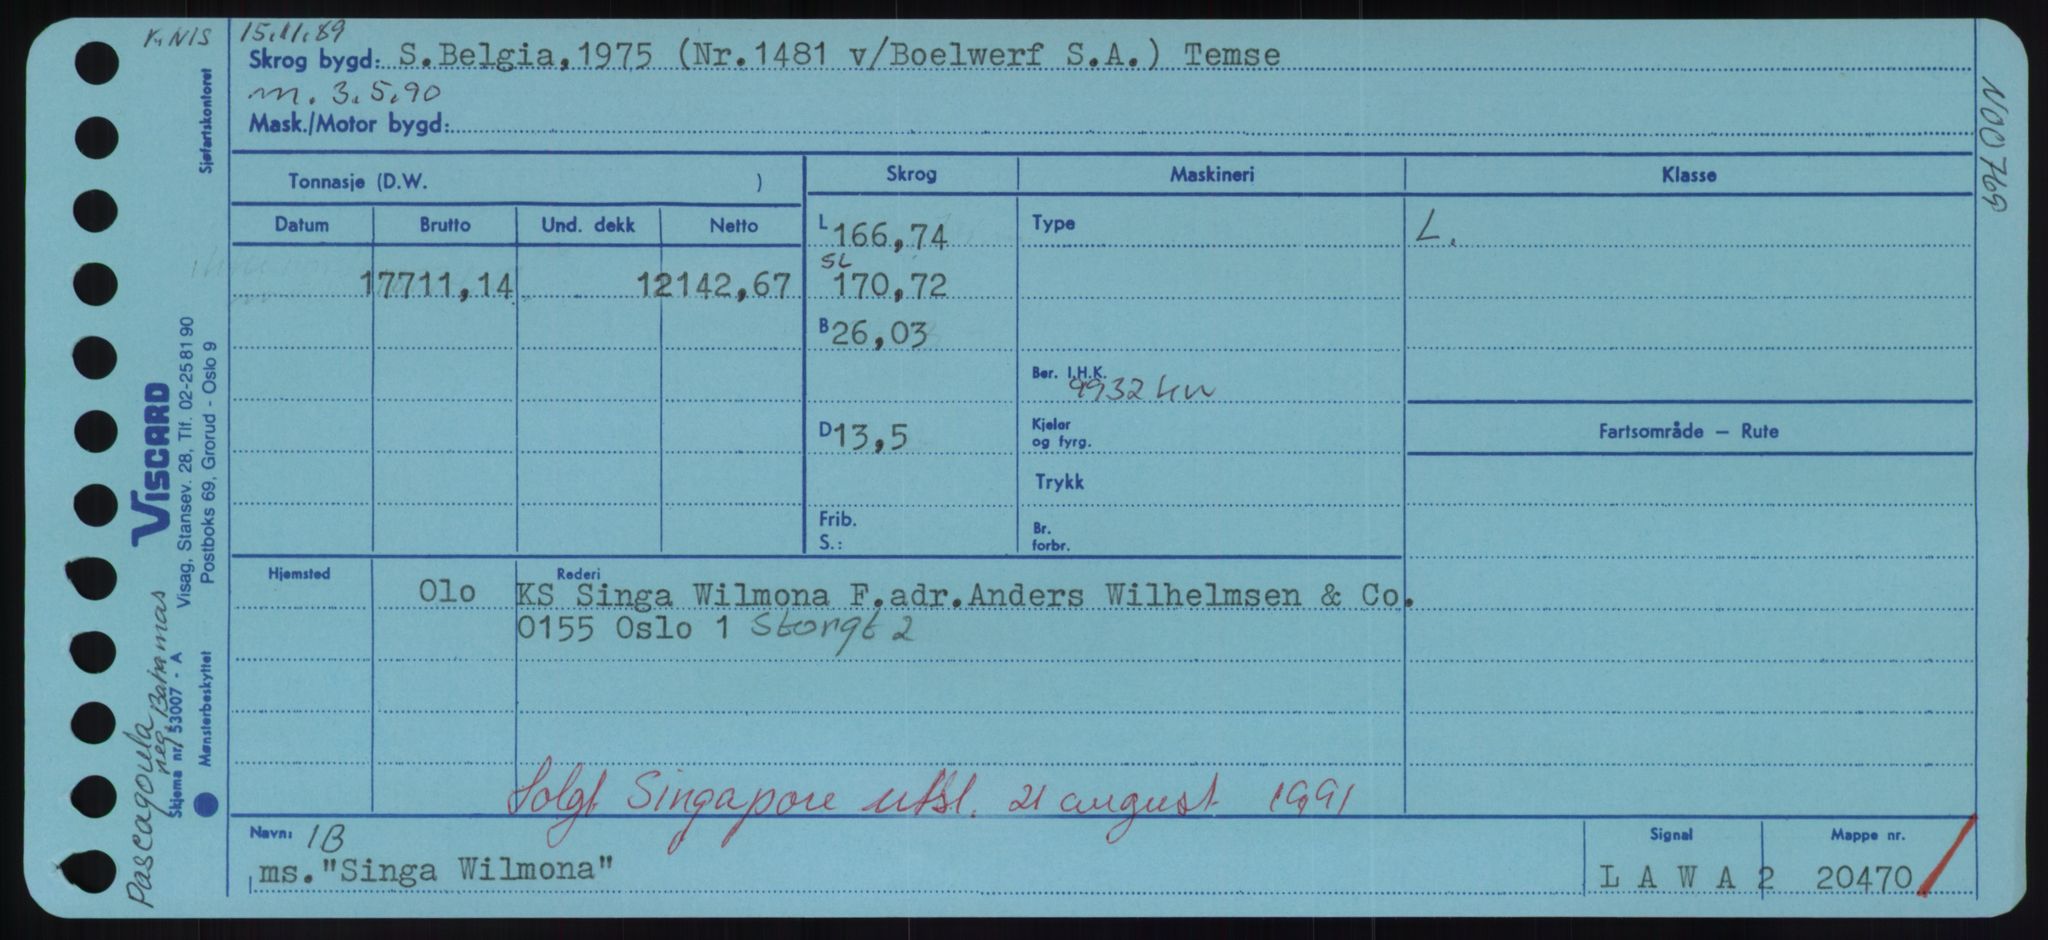 K. NIS 15.11.89
Skrog bygd: S.Belgia, 1975 (Nr.1481 v/Boelwerf S.A.) Temse
m. 3.5.90
Mask./Motor bygd:
Tonnasje (D.W. )
Skrog
Maskineri
Klasse
Datum
Brutto
Und. dekk
Netto
L 166,74
Type
L.
17711,14
12142,67
SL 170,72
B 26,03
Ber. I.H.K.
9932 kw
D 13,5
Kjeler
og fyrg.
Fartsområde — Rute
Trykk
Frib.
S.:
Br.
forbr.
Hjemsted
Olo
Rederi
KS Singa Wilmona F.adr.Anders Wilhelmsen & Co.
0155 Oslo 1 Stongt 2
Solgt Singapore utsl. 21 august 1991
Navn: 1B
ms."Singa Wilmona"
Signal
L A W A 2
Mappe nr.
20470
Sjøfartskontoret
VISCARD
Visag, Stansev. 28, Tlf. 02-25 81 90
Postboks 69, Grorud - Oslo 9
Skjema nr. 53007 - A
Mønsterbeskyttet
Pascagoula
reg. Bahamas
N00769